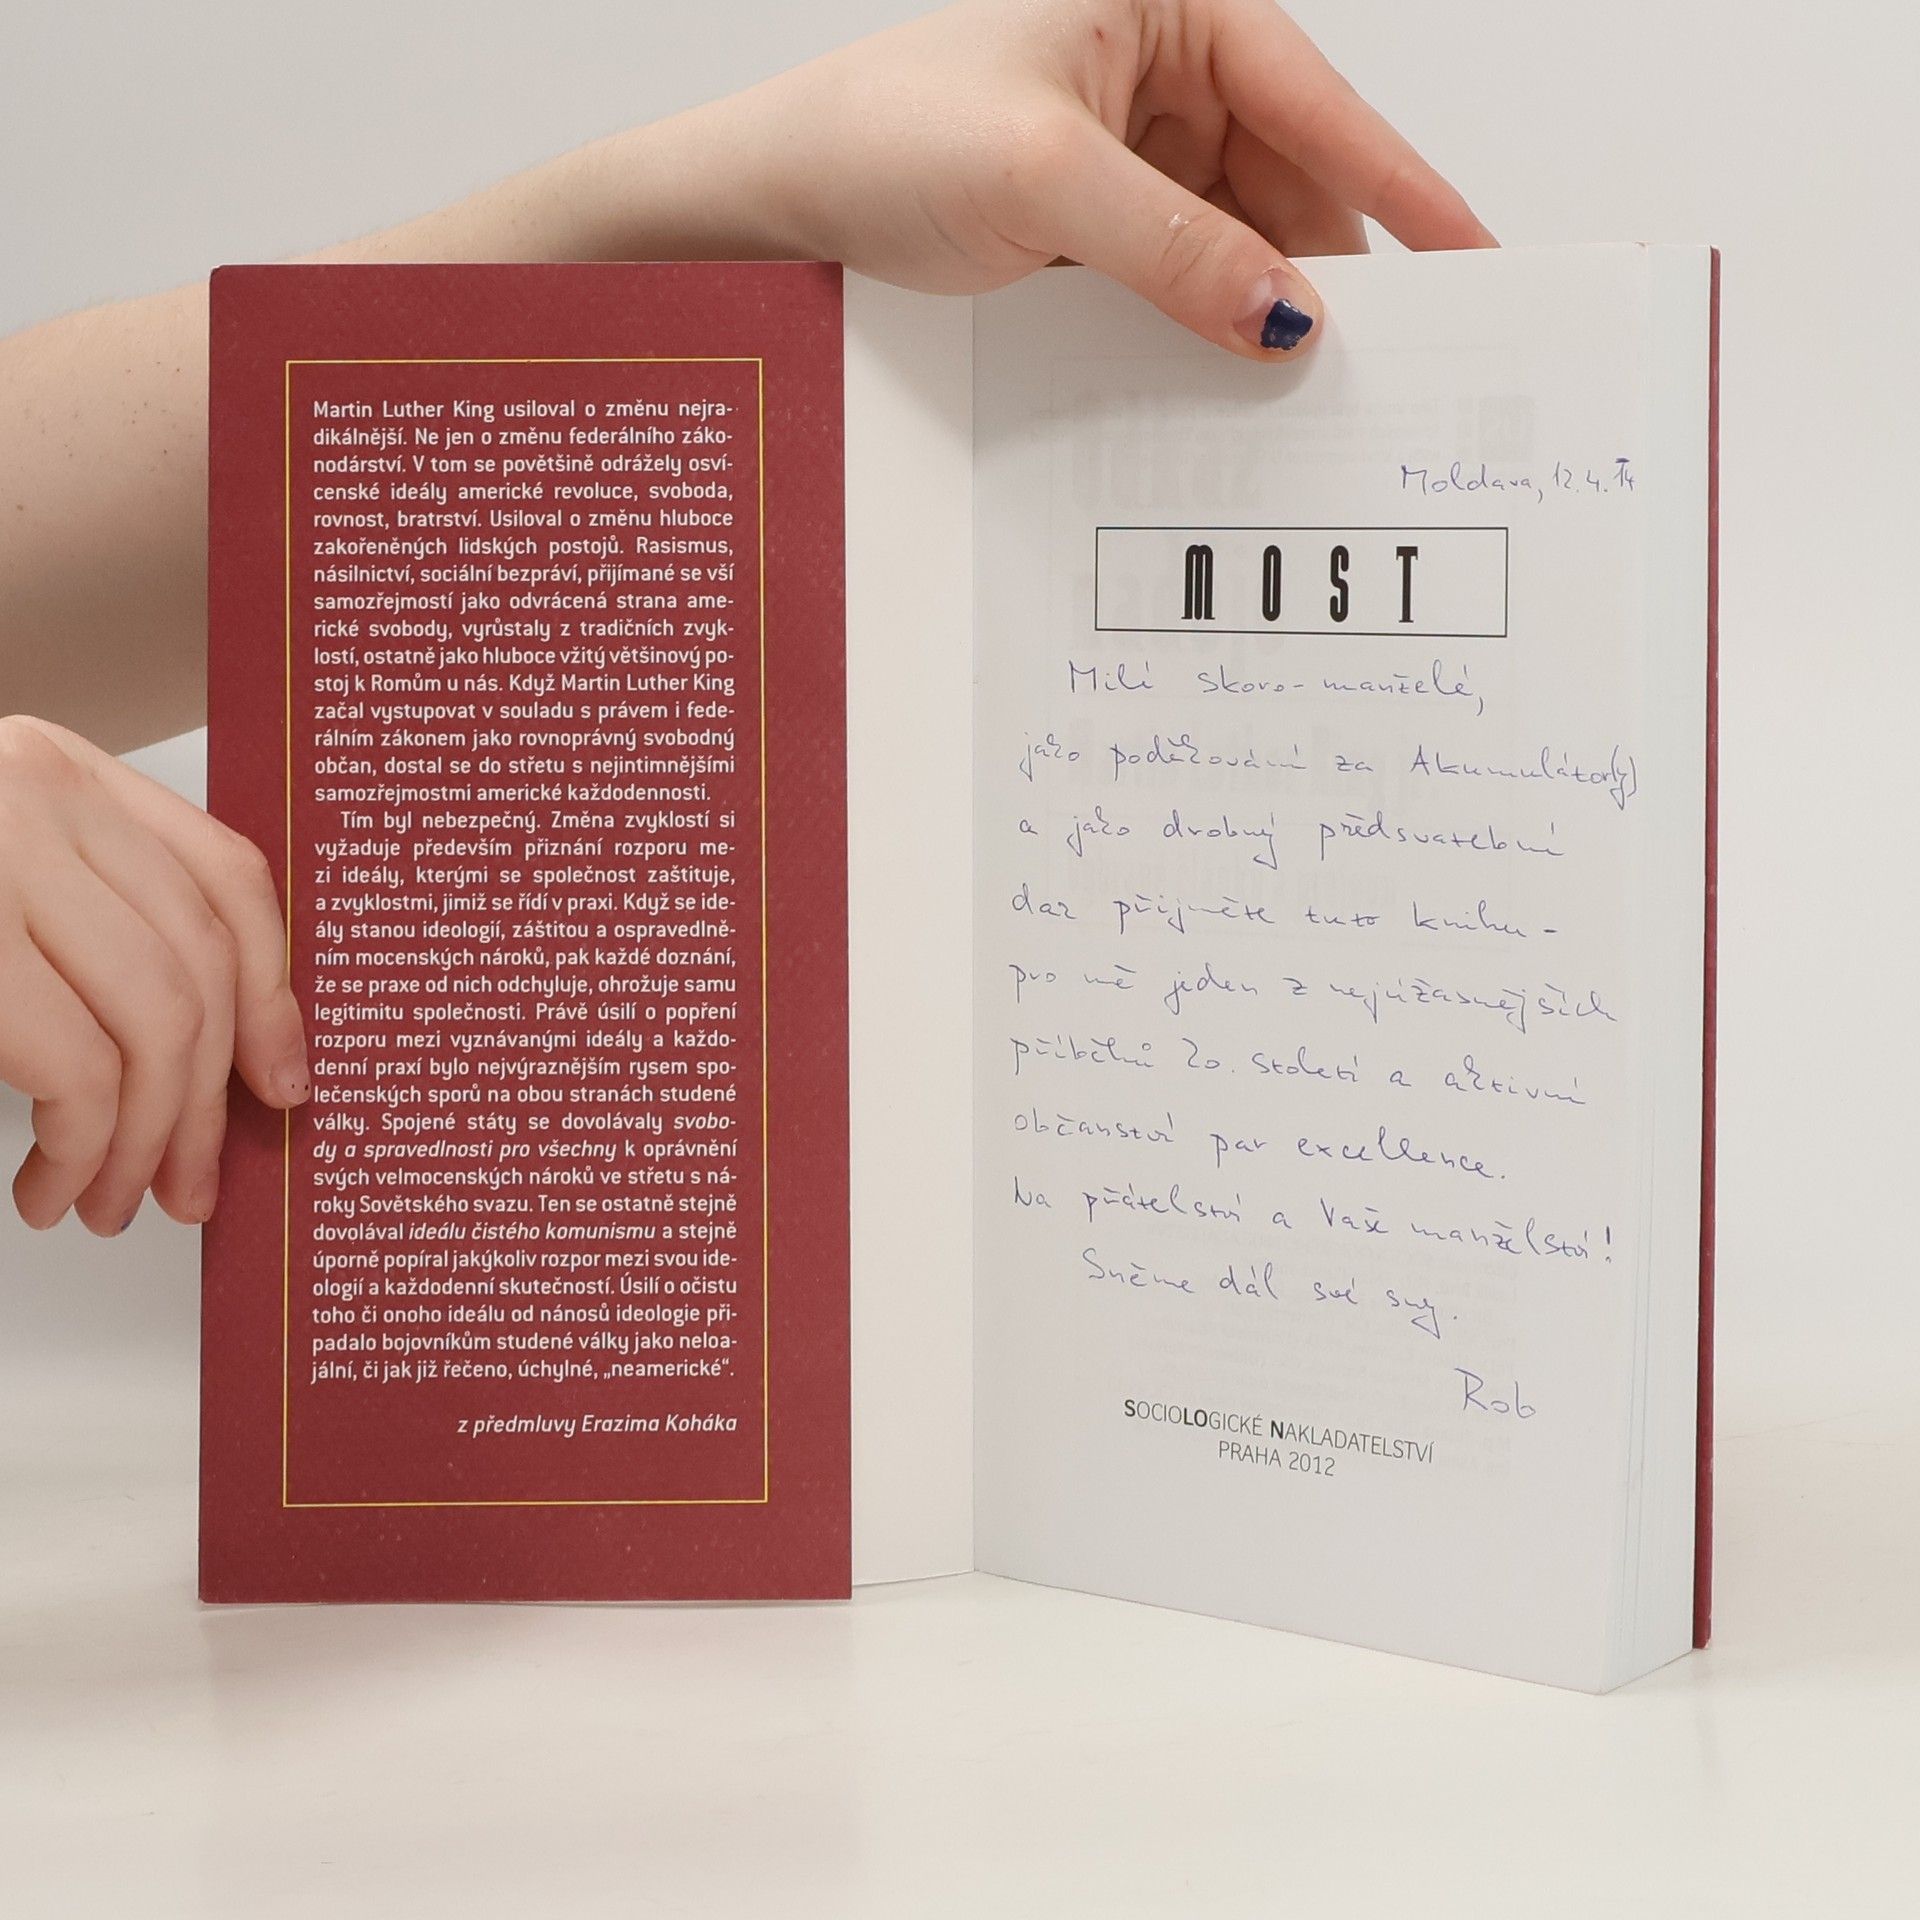 Martin Luther King usiloval o změnu nejra-
dikálnější. Ne jen o změnu federálního záko-
nodárství. V tom se povětšině odrážely osví-
censké ideály americké revoluce, svoboda,
rovnost, bratrství. Usiloval o změnu hluboce
zakořeněných lidských postojů. Rasismus,
násilnictví, sociální bezpráví, přijímané se vší
samozřejmostí jako odvrácená strana ame-
rické svobody, vyrůstaly z tradičních zvyk-
lostí, ostatně jako hluboce vžitý většinový po-
stoj k Romům u nás. Když Martin Luther King
začal vystupovat v souladu s právem i fede-
rálním zákonem jako rovnoprávný svobodný
občan, dostal se do střetu s nejintimnějšími
samozřejmostmi americké každodennosti.
Tím byl nebezpečný. Změna zvyklostí si
vyžaduje především přiznání rozporu me-
zi ideály, kterými se společnost zaštituje,
a zvyklostmi, jimiž se řídí v praxi. Když se ide-
ály stanou ideologií, záštitou a ospravedlně-
ním mocenských nároků, pak každé doznání,
že se praxe od nich odchyluje, ohrožuje samu
legitimitu společnosti. Právě úsilí o popření
rozporu mezi vyznávanými ideály a každo-
denní praxí bylo nejvýraznějším rysem spo-
lečenských sporů na obou stranách studené
války. Spojené státy se dovolávaly svobo-
dy a spravedlnosti pro všechny k oprávnění
svých velmocenských nároků ve střetu s ná-
roky Sovětského svazu. Ten se ostatně stejně
dovolával ideálu čistého komunismu a stejně
úporně popíral jakýkoliv rozpor mezi svou ide-
ologií a každodenní skutečností. Úsilí o očistu
toho či onoho ideálu od nánosů ideologie při-
padalo bojovníkům studené války jako neloa-
jální, či jak již řečeno, úchylné, „neamerické“.
z předmluvy Erazima Koháka
Moldava, 12. 4. 14
MOST
Milí skoro-manželé,
jako poděkování za Akumulátor(y)
a jako drobný předsvatební
dar přijměte tuto knihu -
pro mě jeden z nejúžasnějších
příběhů 20. století a aktivní
občanství par excellence.
Na přátelství a Vaše manželství!
Sněme dál své sny.
Rob
SOCIOLOGICKÉ NAKLADATELSTVÍ
PRAHA 2012